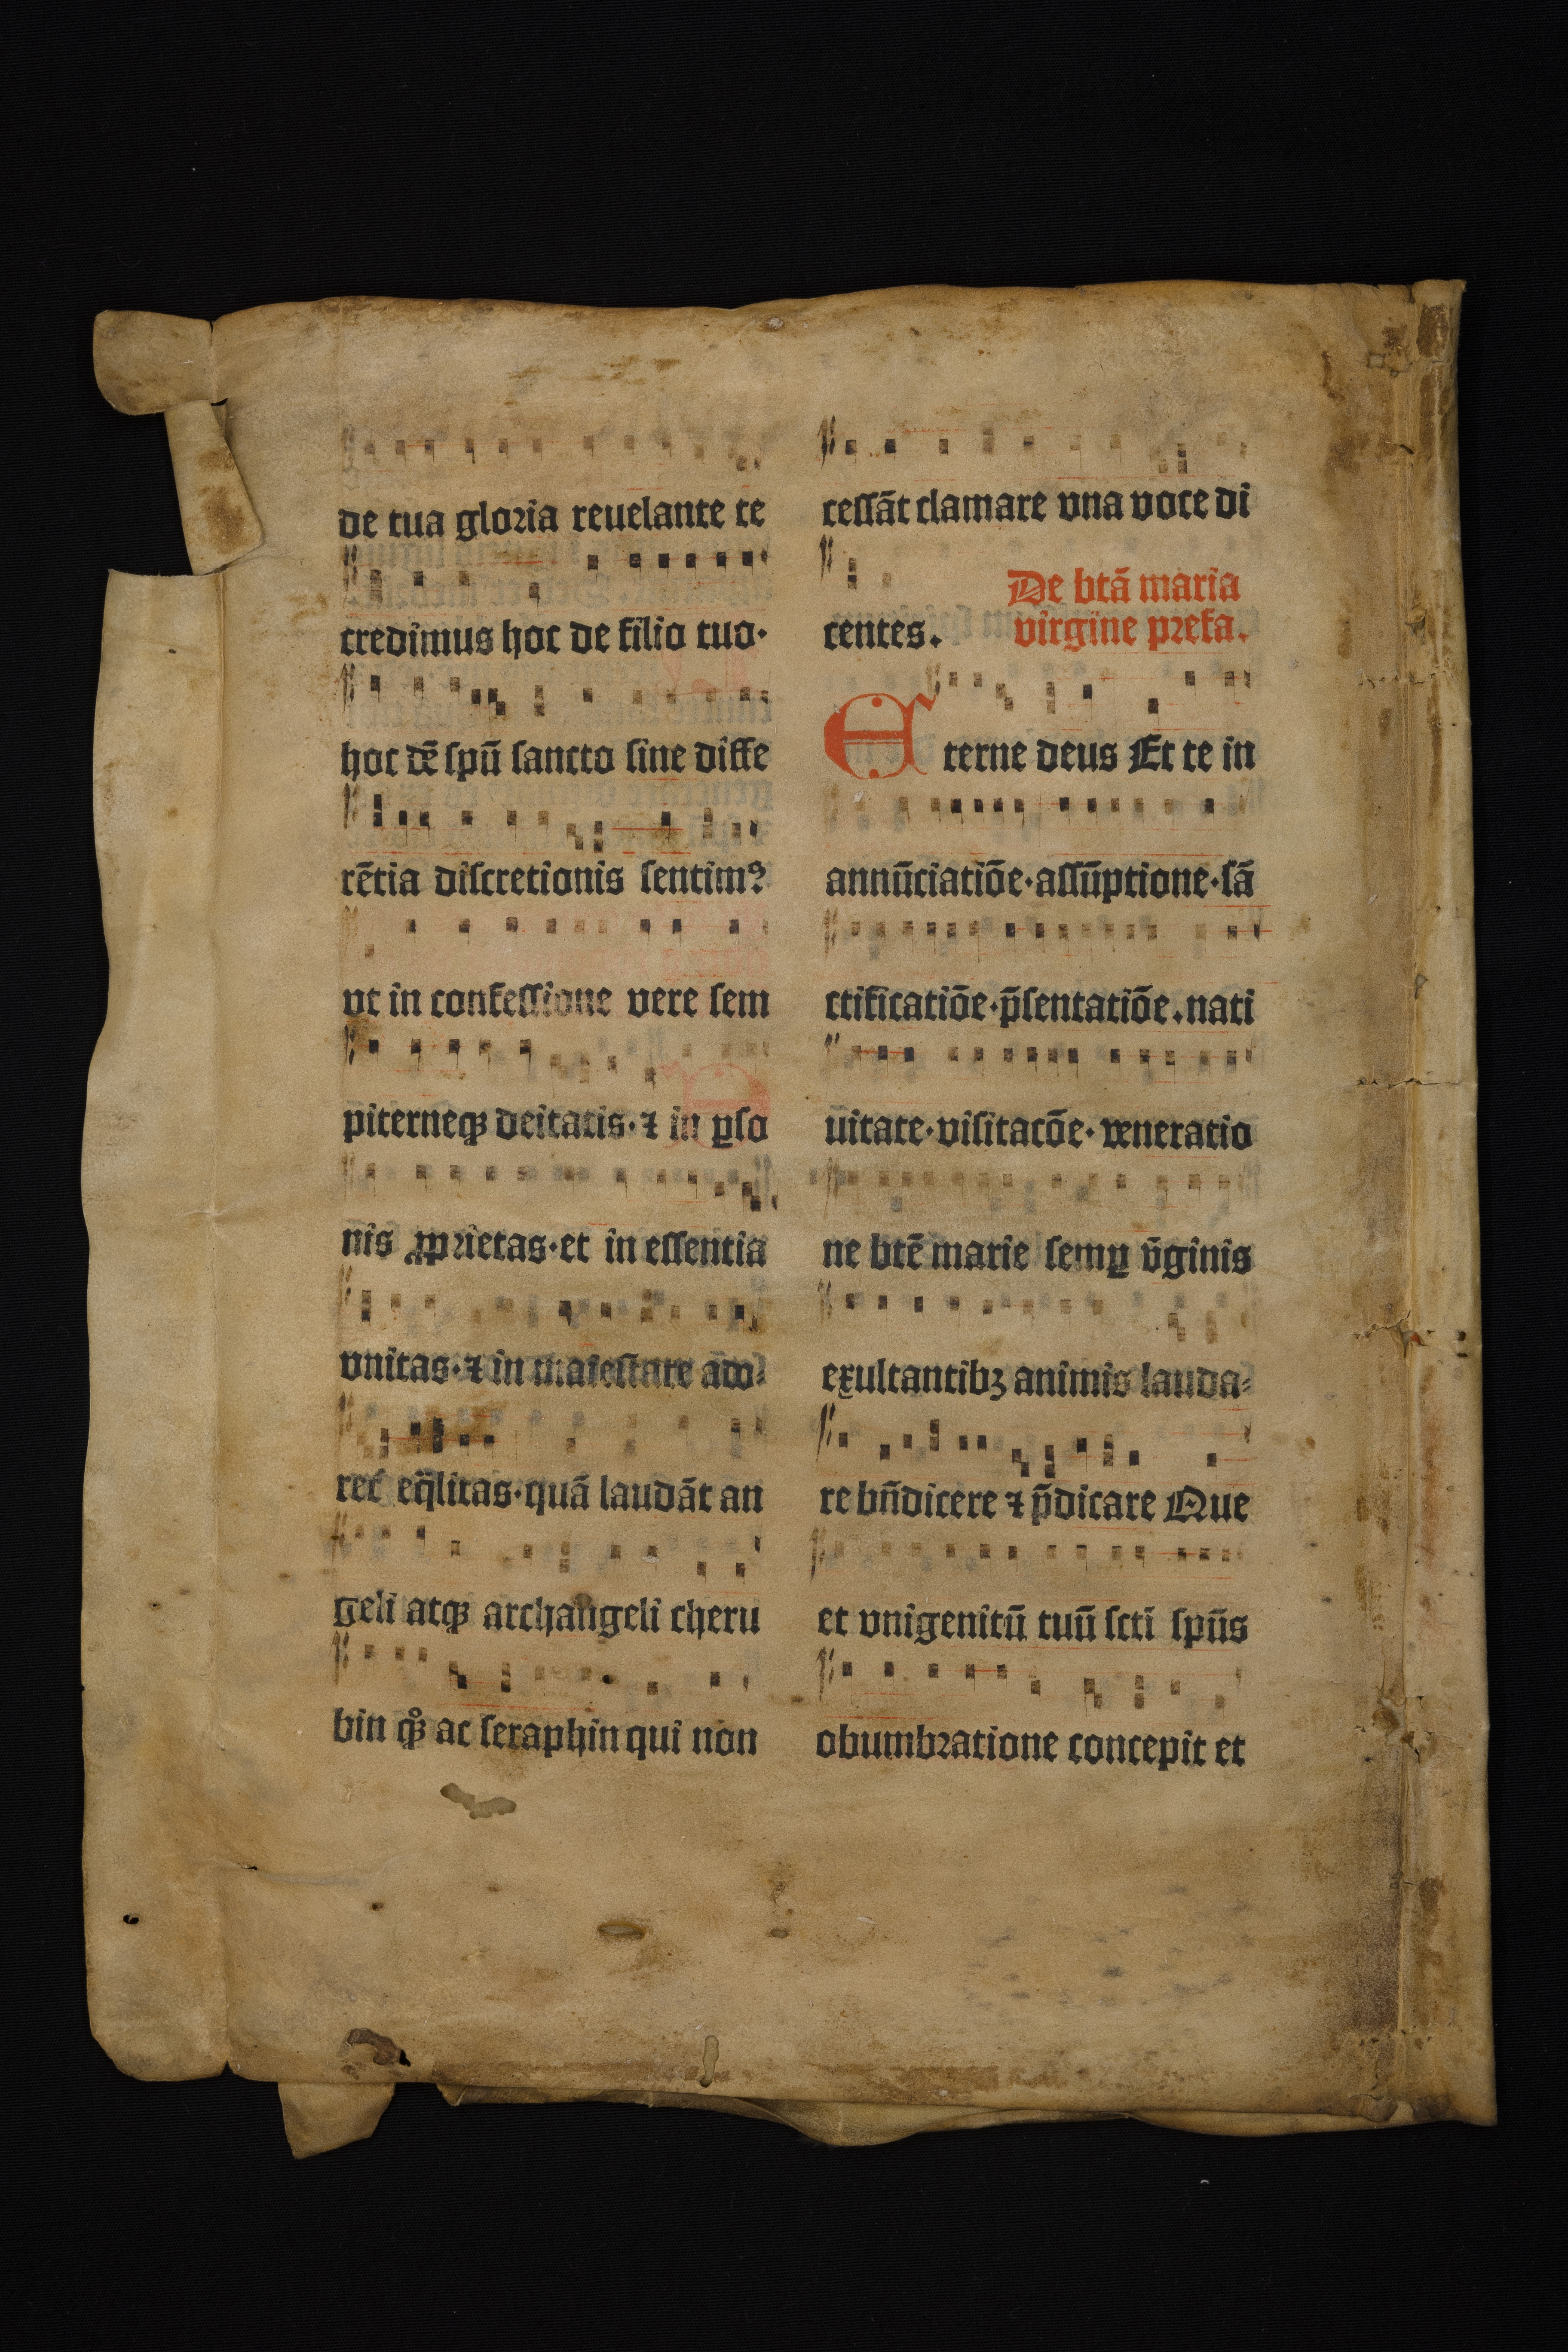 de tua gloria reuelante te
credimus hoc de filio tuo·
hoc dē spū sancto sine diffe
rētia discretionis sentimꝰ
vt in confessione vere sem
piterneqꝫ deitatis· ⁊ in ꝑso
nis ꝓprietas·et in essentia
vnitas·⁊ in maiestate ado⸗
ret᷑ eq̄litas·quā laudāt an
geli atqꝫ archangeli cheru
bin qꝫ ac seraphin qui non
cessāt clamare vna voce di
centes.
De btā maria
virgine prefa.
Eterne deus Et te in
annūciatiōe·assūptione·sā
ctificatiōe·p̄sentatiōe.nati
uitate·visitacōe·veneratio
ne btē marie semꝑ v̄ginis
exultantibꝫ animis lauda⸗
re bn̄dicere ⁊ p̄dicare Que
et vnigenitū tuū scti spūs
obumbratione concepit et